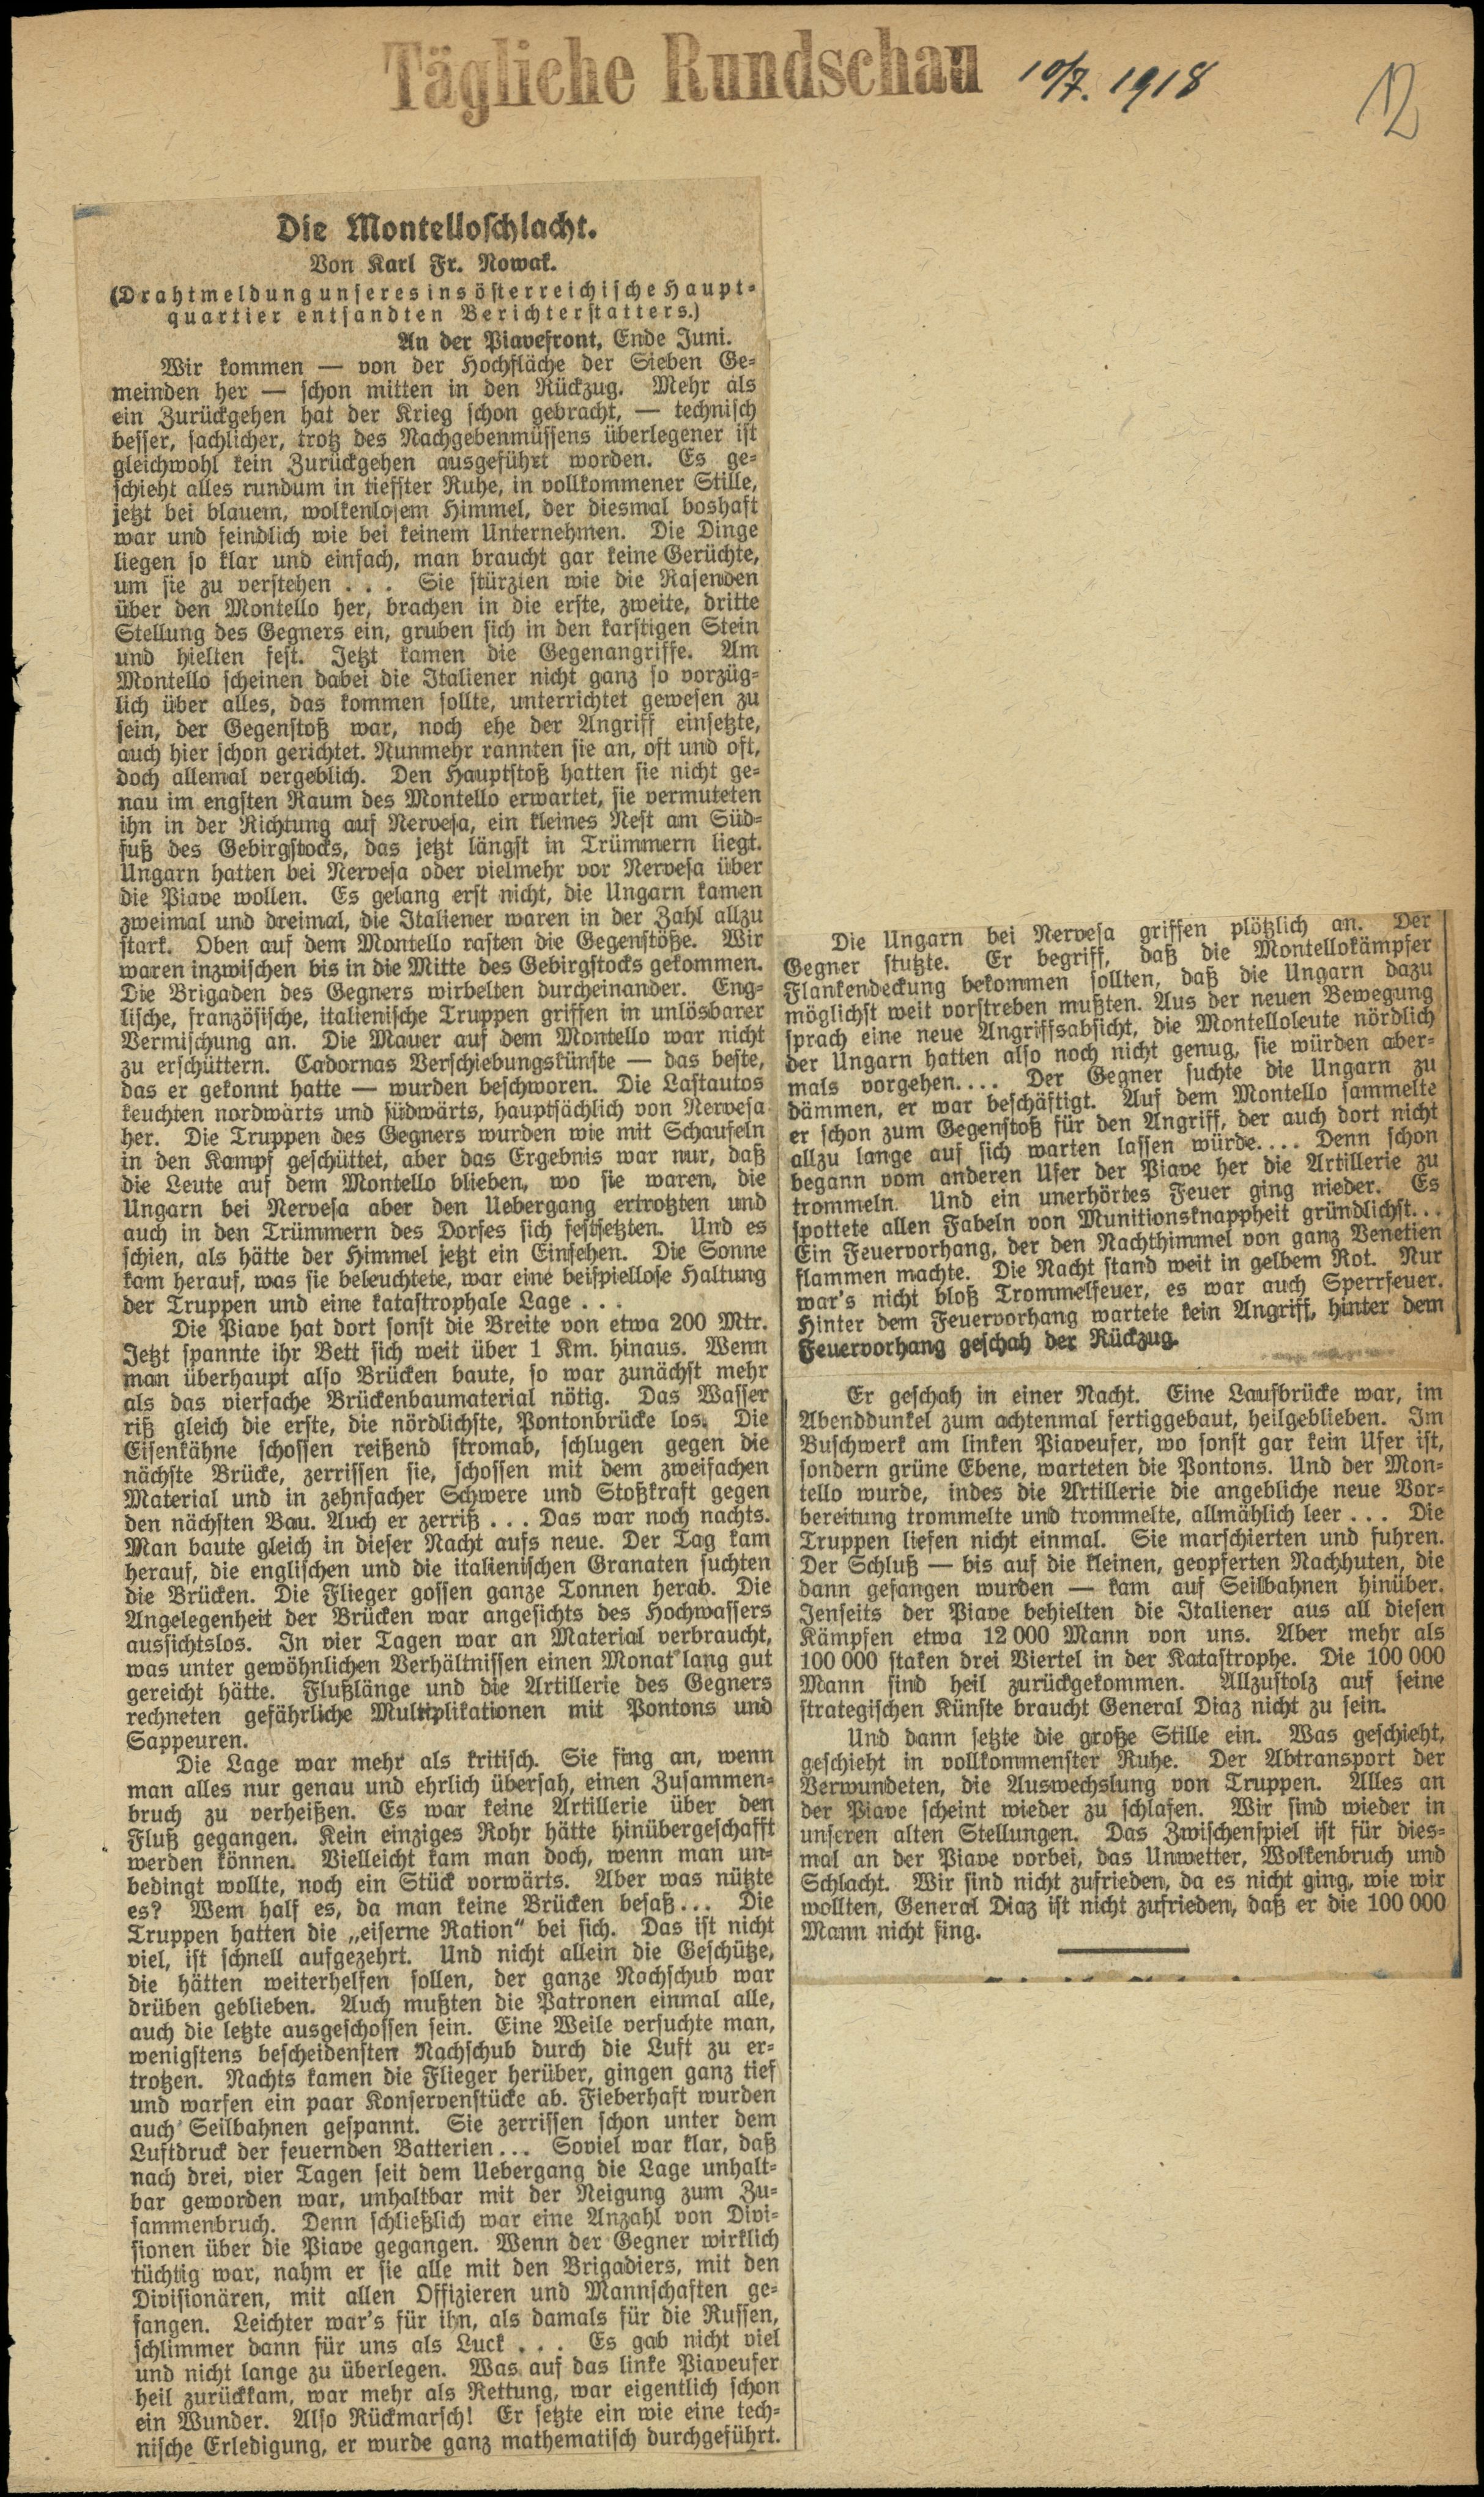 Tägliche Rundschau 10/7. 1918
12
Die Montelloschlacht.
Von Karl Fr. Nowak.
(Drahtmeldung unseres ins österreichische Haupt-
quartier entsandten Berichterstatters.)
An der Piavefront, Ende Juni.
Wir kommen — von der Hochfläche der Sieben Ge-
meinden her — schon mitten in den Rückzug. Mehr als
ein Zurückgehen hat der Krieg schon gebracht, — technisch
besser, sachlicher, trotz des Nachgebenmüssens überlegener ist
gleichwohl kein Zurückgehen ausgeführt worden. Es ge-
schieht alles rundum in tiefster Ruhe, in vollkommener Stille,
jetzt bei blauem, wolkenlosem Himmel, der diesmal boshaft
war und feindlich wie bei keinem Unternehmen. Die Dinge
liegen so klar und einfach, man braucht gar keine Gerüchte,
um sie zu verstehen . . . Sie stürzten wie die Rasenden
über den Montello her, brachen in die erste, zweite, dritte
Stellung des Gegners ein, gruben sich in den karstigen Stein
und hielten fest. Jetzt kamen die Gegenangriffe. Am
Montello scheinen dabei die Italiener nicht ganz so vorzüg-
lich über alles, das kommen sollte, unterrichtet gewesen zu
sein, der Gegenstoß war, noch ehe der Angriff einsetzte,
auch hier schon gerichtet. Nunmehr rannten sie an, oft und oft,
doch allemal vergeblich. Den Hauptstoß hatten sie nicht ge-
nau im engsten Raum des Montello erwartet, sie vermuteten
ihn in der Richtung auf Nervesa, ein kleines Nest am Süd-
fuß des Gebirgstocks, das jetzt längst in Trümmern liegt.
Ungarn hatten bei Nervesa oder vielmehr vor Nervesa über
die Piave wollen. Es gelang erst nicht, die Ungarn kamen
zweimal und dreimal, die Italiener waren in der Zahl allzu
stark. Oben auf dem Montello rasten die Gegenstöße. Wir
waren inzwischen bis in die Mitte des Gebirgstocks gekommen.
Die Brigaden des Gegners wirbelten durcheinander. Eng-
lische, französische, italienische Truppen griffen in unlösbarer
Vermischung an. Die Mauer auf dem Montello war nicht
zu erschüttern. Cadornas Verschiebungskünste — das beste,
das er gekonnt hatte — wurden beschworen. Die Lastautos
keuchten nordwärts und südwärts, hauptsächlich von Nervesa
her. Die Truppen des Gegners wurden wie mit Schaufeln
in den Kampf geschüttet, aber das Ergebnis war nur, daß
die Leute auf dem Montello blieben, wo sie waren, die
Ungarn bei Nervesa aber den Uebergang ertrotzten und
auch in den Trümmern des Dorfes sich festsetzten. Und es
schien, als hätte der Himmel jetzt ein Einsehen. Die Sonne
kam herauf, was sie beleuchtete, war eine beispiellose Haltung
der Truppen und eine katastrophale Lage . . .
Die Piave hat dort sonst die Breite von etwa 200 Mtr.
Jetzt spannte ihr Bett sich weit über 1 Km. hinaus. Wenn
man überhaupt also Brücken baute, so war zunächst mehr
als das vierfache Brückenbaumaterial nötig. Das Wasser
riß gleich die erste, die nördlichste, Pontonbrücke los. Die
Eisenkähne schossen reißend stromab, schlugen gegen die
nächste Brücke, zerrissen sie, schossen mit dem zweifachen
Material und in zehnfacher Schwere und Stoßkraft gegen
den nächsten Bau. Auch er zerriß . . . Das war noch nachts.
Man baute gleich in dieser Nacht aufs neue. Der Tag kam
herauf, die englischen und die italienischen Granaten suchten
die Brücken. Die Flieger gossen ganze Tonnen herab. Die
Angelegenheit der Brücken war angesichts des Hochwassers
aussichtslos. In vier Tagen war an Material verbraucht,
was unter gewöhnlichen Verhältnissen einen Monat lang gut
gereicht hätte. Flußlänge und die Artillerie des Gegners
rechneten gefährliche Multiplikationen mit Pontons und
Sappeuren.
Die Lage war mehr als kritisch. Sie fing an, wenn
man alles nur genau und ehrlich übersah, einen Zusammen-
bruch zu verheißen. Es war keine Artillerie über den
Fluß gegangen. Kein einziges Rohr hätte hinübergeschafft
werden können. Vielleicht kam man doch, wenn man un-
bedingt wollte, noch ein Stück vorwärts. Aber was nützte
es? Wem half es, da man keine Brücken besaß... Die
Truppen hatten die „eiserne Ration“ bei sich. Das ist nicht
viel, ist schnell aufgezehrt. Und nicht allein die Geschütze,
die hätten weiterhelfen sollen, der ganze Nachschub war
drüben geblieben. Auch mußten die Patronen einmal alle,
auch die letzte ausgeschossen sein. Eine Weile versuchte man,
wenigstens bescheidensten Nachschub durch die Luft zu er-
trotzen. Nachts kamen die Flieger herüber, gingen ganz tief
und warfen ein paar Konservenstücke ab. Fieberhaft wurden
auch Seilbahnen gespannt. Sie zerrissen schon unter dem
Luftdruck der feuernden Batterien... Soviel war klar, daß
nach drei, vier Tagen seit dem Uebergang die Lage unhalt-
bar geworden war, unhaltbar mit der Neigung zum Zu-
sammenbruch. Denn schließlich war eine Anzahl von Divi-
sionen über die Piave gegangen. Wenn der Gegner wirklich
tüchtig war, nahm er sie alle mit den Brigadiers, mit den
Divisionären, mit allen Offizieren und Mannschaften ge-
fangen. Leichter war's für ihn, als damals für die Russen,
schlimmer dann für uns als Luck . . . Es gab nicht viel
und nicht lange zu überlegen. Was auf das linke Piaveufer
heil zurückkam, war mehr als Rettung, war eigentlich schon
ein Wunder. Also Rückmarsch! Er setzte ein wie eine tech-
nische Erledigung, er wurde ganz mathematisch durchgeführt.
Die Ungarn bei Nervesa griffen plötzlich an. Der
Gegner stutzte. Er begriff, daß die Montellokämpfer
Flankendeckung bekommen sollten, daß die Ungarn dazu
möglichst weit vorstreben mußten. Aus der neuen Bewegung
sprach eine neue Angriffsabsicht, die Montelloleute nördlich
der Ungarn hatten also noch nicht genug, sie würden aber-
mals vorgehen.... Der Gegner suchte die Ungarn zu
dämmen, er war beschäftigt. Auf dem Montello sammelte
er schon zum Gegenstoß für den Angriff, der auch dort nicht
allzu lange auf sich warten lassen würde.... Denn schon
begann vom anderen Ufer der Piave her die Artillerie zu
trommeln. Und ein unerhörtes Feuer ging nieder. Es
spottete allen Fabeln von Munitionsknappheit gründlichst...
Ein Feuervorhang, der den Nachthimmel von ganz Venetien
flammen machte. Die Nacht stand weit in gelbem Rot. Nur
war's nicht bloß Trommelfeuer, es war auch Sperrfeuer.
Hinter dem Feuervorhang wartete kein Angriff, hinter dem
Feuervorhang geschah der Rückzug.
Er geschah in einer Nacht. Eine Laufbrücke war, im
Abenddunkel zum achtenmal fertiggebaut, heilgeblieben. Im
Buschwerk am linken Piaveufer, wo sonst gar kein Ufer ist,
sondern grüne Ebene, warteten die Pontons. Und der Mon-
tello wurde, indes die Artillerie die angebliche neue Vor-
bereitung trommelte und trommelte, allmählich leer . . . Die
Truppen liefen nicht einmal. Sie marschierten und fuhren.
Der Schluß — bis auf die kleinen, geopferten Nachhuten, die
dann gefangen wurden — kam auf Seilbahnen hinüber.
Jenseits der Piave behielten die Italiener aus all diesen
Kämpfen etwa 12 000 Mann von uns. Aber mehr als
100 000 staken drei Viertel in der Katastrophe. Die 100 000
Mann sind heil zurückgekommen. Allzustolz auf seine
strategischen Künste braucht General Diaz nicht zu sein.
Und dann setzte die große Stille ein. Was geschieht,
geschieht in vollkommenster Ruhe. Der Abtransport der
Verwundeten, die Auswechslung von Truppen. Alles an
der Piave scheint wieder zu schlafen. Wir sind wieder in
unseren alten Stellungen. Das Zwischenspiel ist für dies-
mal an der Piave vorbei, das Unwetter, Wolkenbruch und
Schlacht. Wir sind nicht zufrieden, da es nicht ging, wie wir
wollten, General Diaz ist nicht zufrieden, daß er die 100 000
Mann nicht fing.